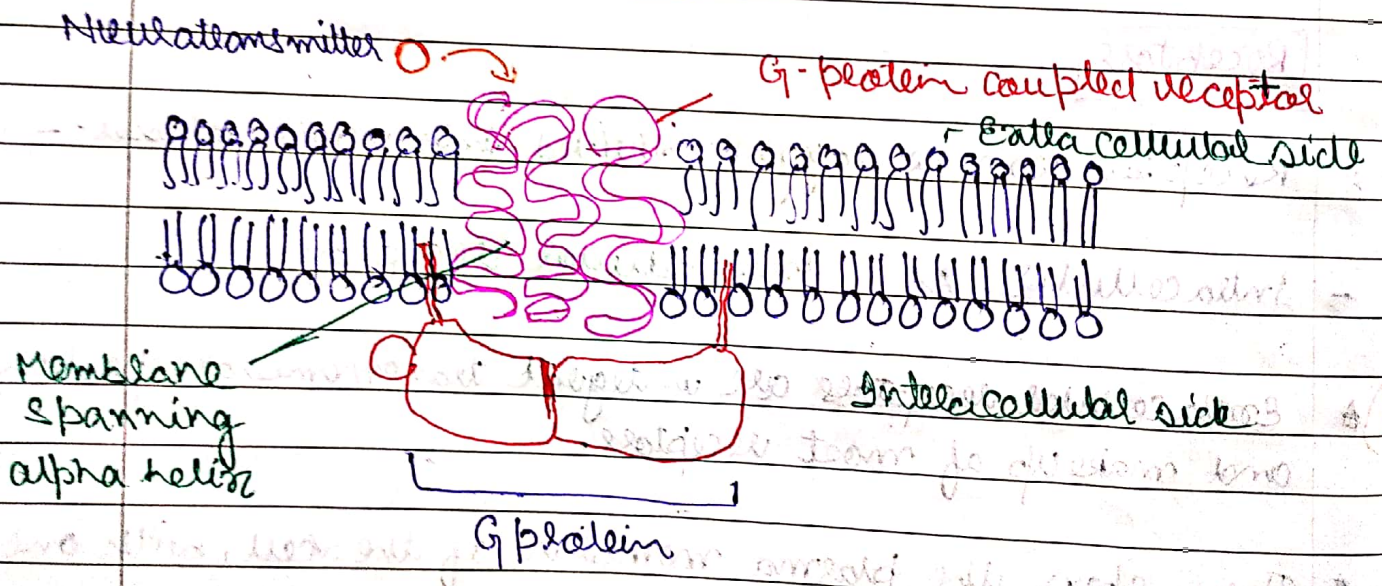 Neurotransmitter
G-protein coupled receptor
Extracellular side
Membrane
spanning
alpha helix
Intracellular side
G protein